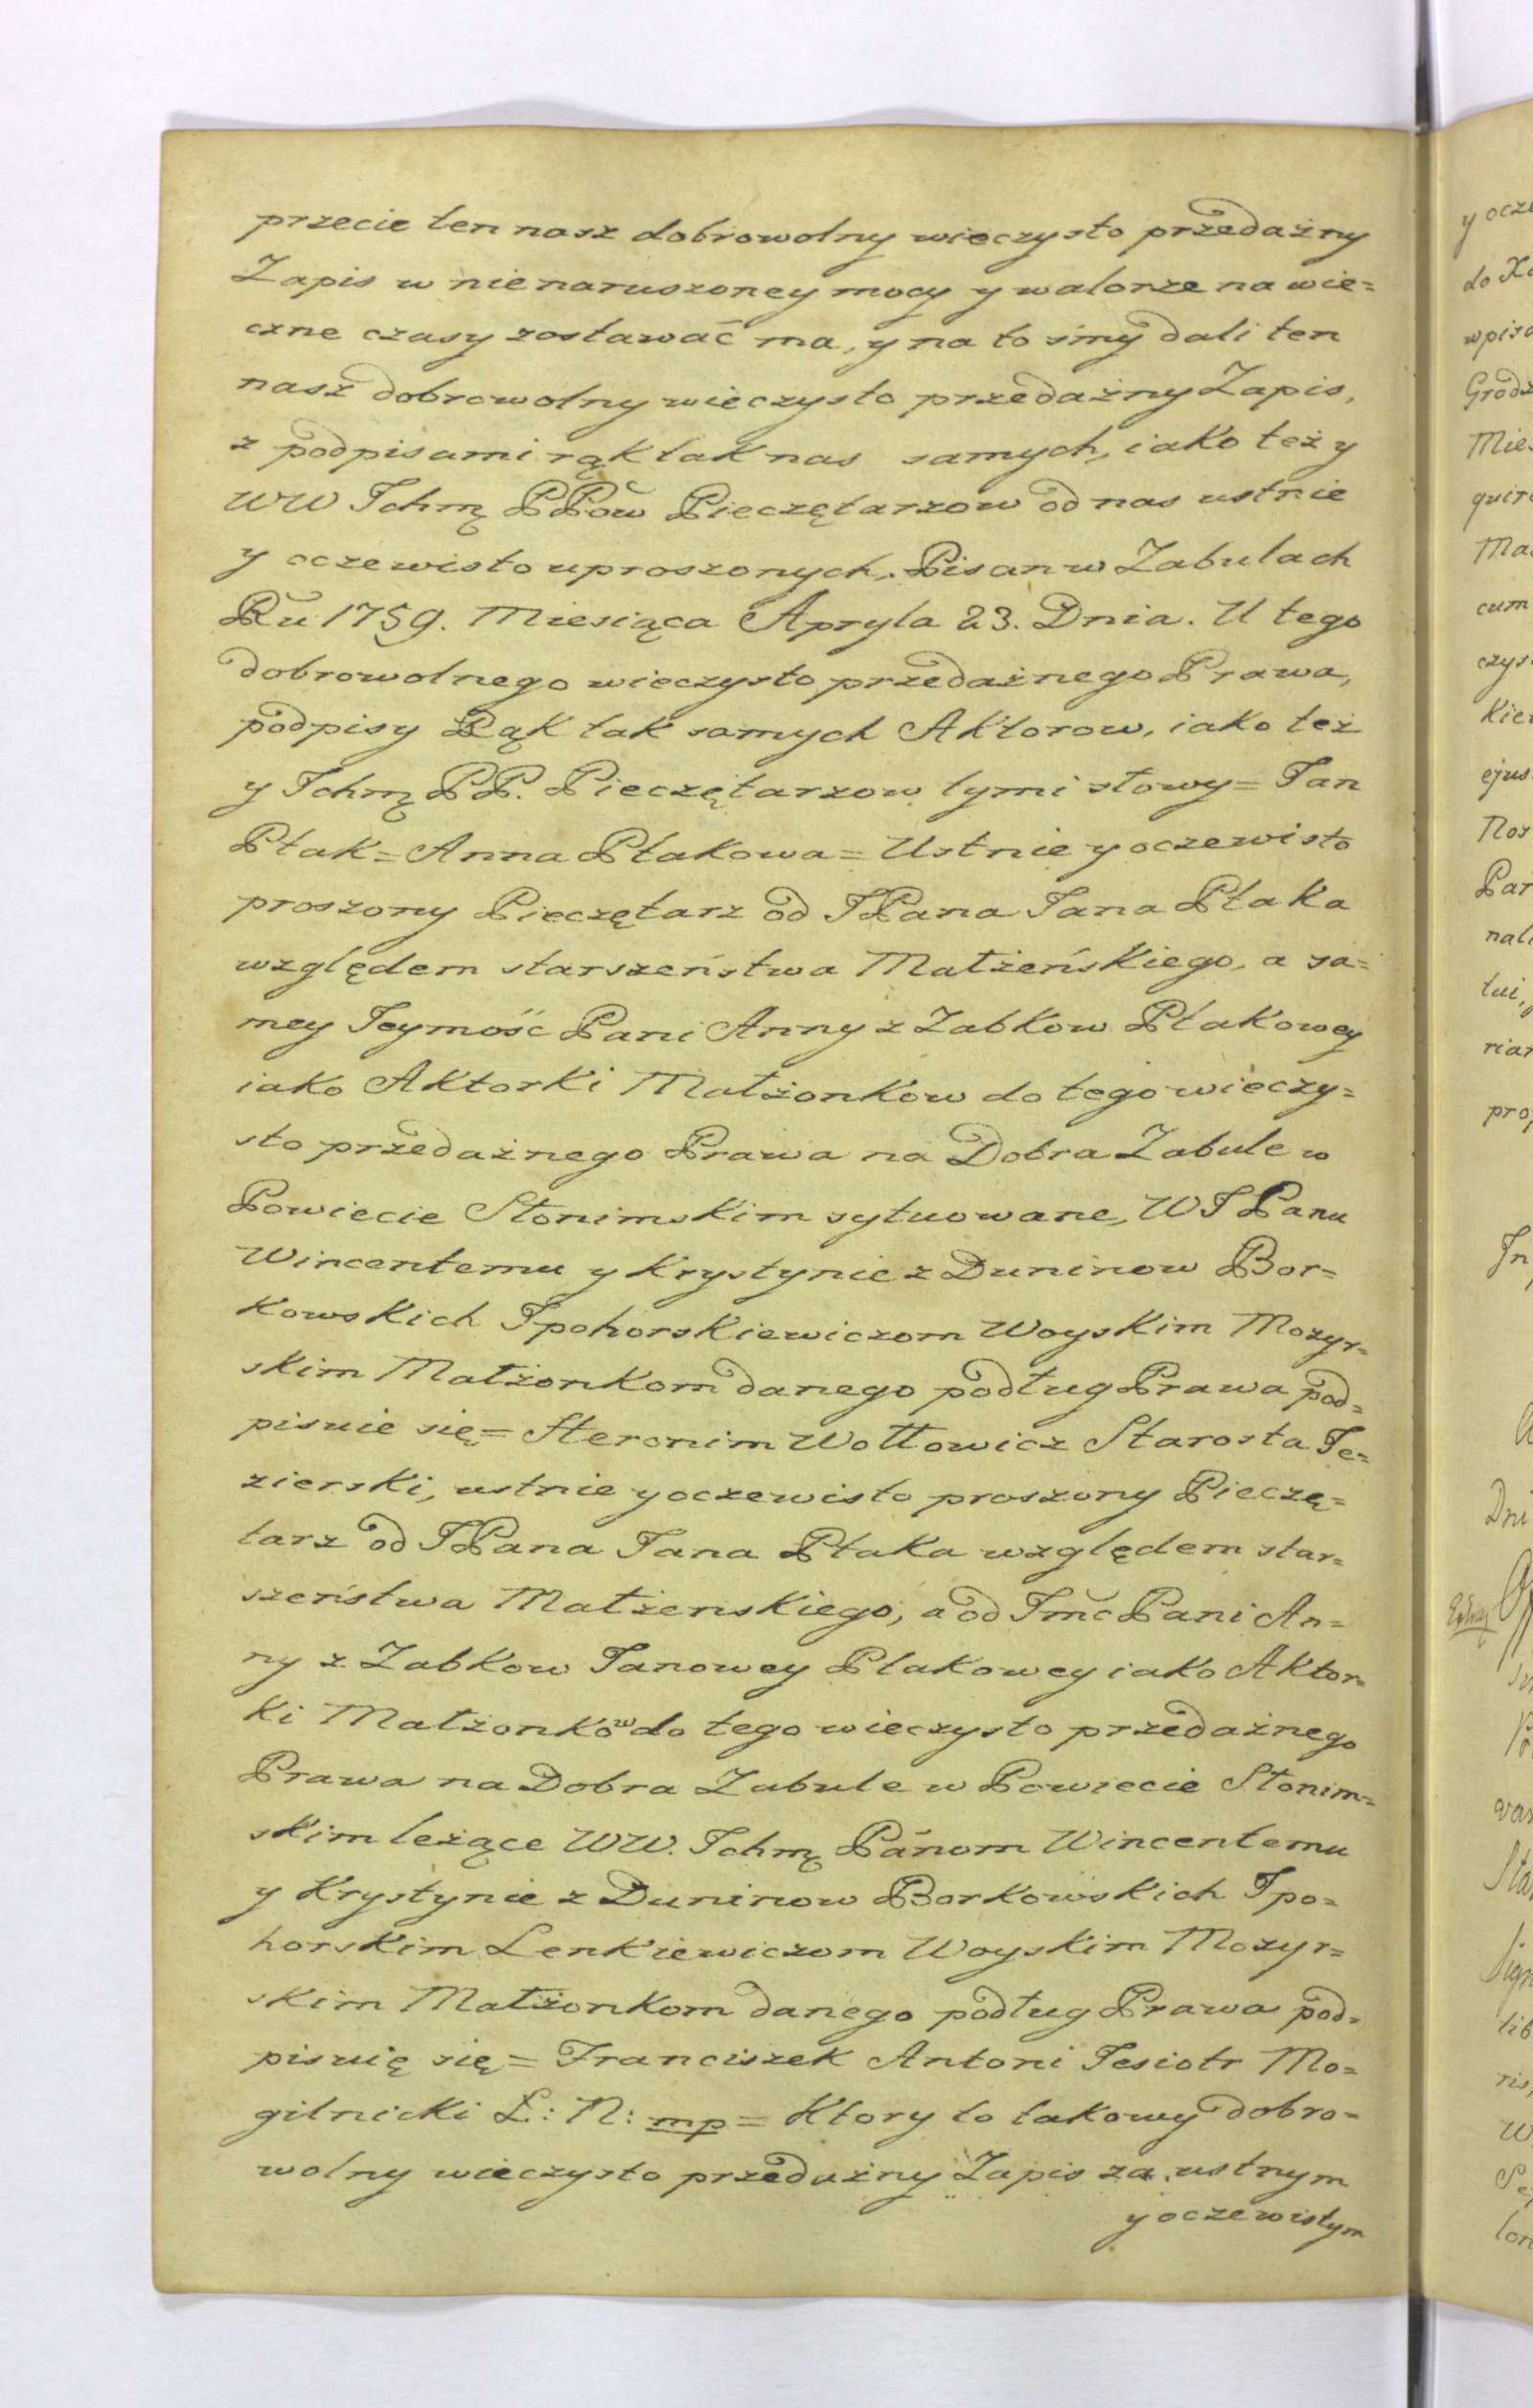 przecie ten nasz dobrowolny wieczysto przedażny
Zapis w nienaruszoney mocy y walorze na wie=
czne czasy zostawać ma, y na to śmy dali ten
nasz dobrowolny wieczysto przedażny Zapis,
z podpisami rąk tak nas samych, iako też y
WW Ichmę PPow Pieczętarzow od nas ustnie
y oczewisto uproszonych. Pisan w Zabulach
Ru 1759. Miesiąca Apryla 23. Dnia. U tego
dobrowolnego wieczysto przedażnego Prawa,
podpisy Rąk tak samych Aktorow, iako też
y Ichmę PP. Pieczętarzow tymi słowy = Jan
Ptak = Anna Ptakowa = Ustnie y oczewisto
proszony Pieczętarz od JPana Jana Ptaka
względem starszeństwa Małżeńskiego, a sa=
mey Jeymość Pani Anny z Zabkow Ptakowey
iako Aktorki Małżonkow do tego wieczy=
sto przedażnego Prawa na Dobra Zabule w
Powiecie Słonimskim sytuowane, WJPanu
Wincentemu y Krystynie z Duninow Bor=
kowskich Jpohorskiewiczom Woyskim Mozyr=
skim Małżonkom danego podług Prawa pod=
pisuie się = Heronim Wołłowicz Starosta Je=
zierski, ustnie y oczewisto proszony Pieczę=
tarz od JPana Jana Ptaka względem star=
szeństwa Małżenskiego, a od Jmc Pani An=
ny z Zabkow Janowey Ptakowey iako Aktor=
ki Małżonków do tego wieczysto przedażnego
Prawa na Dobra Zabule w Powiecie Słonim=
skim leżące WW. Ichmę Panom Wincentemu
y Krystynie z Duninow Borkowskich Jpo=
horskim Lenkiewiczom Woyskim Mozyr=
skim Małżonkom danego podług Prawa pod=
pisuię się = Franciszek Antoni Jesiotr Mo=
gilnicki Ł: N: mp = Ktory to takowy dobro=
wolny wieczysto przedażny Zapis za ustnym
y oczewistym